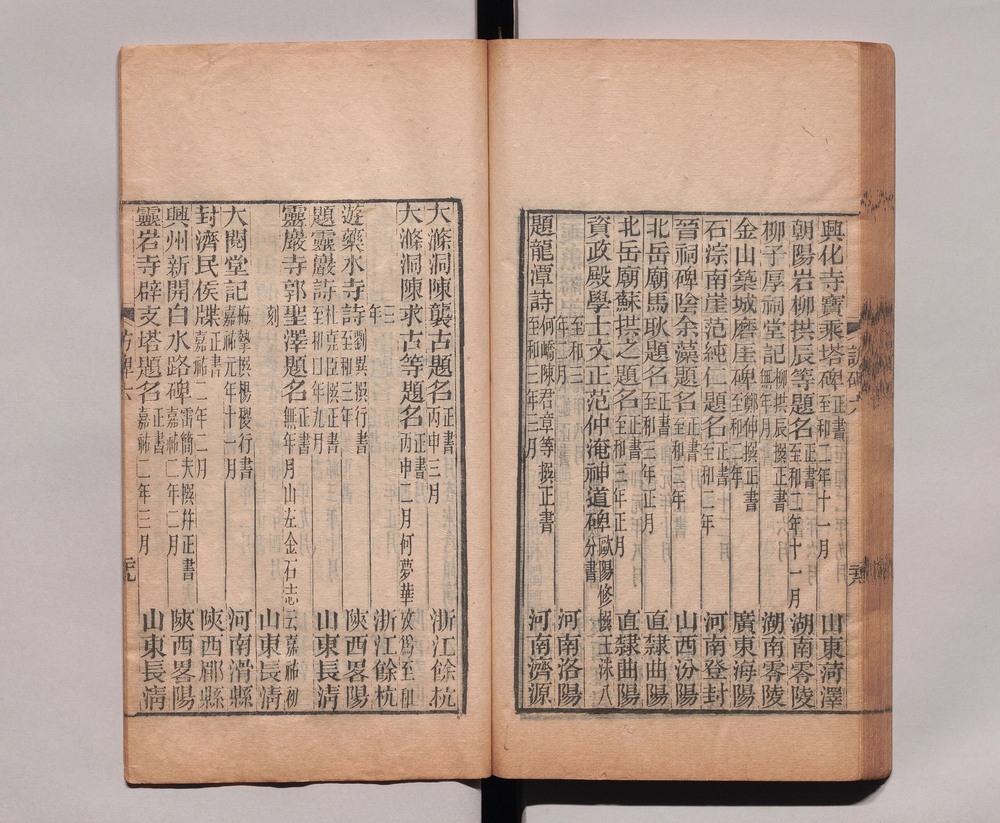 興化寺寶乘塔碑 正書 至和二年十一月 山東菏澤
朝陽岩柳拱辰等題名 正書 至和二年十一月 湖南零陵
柳子厚祠堂記 柳拱辰撰正書 無年月 湖南零陵
金山築城磨崖碑 鄭伸撰正書 至和二年 廣東海陽
石淙南崖范純仁題名 正書 至和二年 河南登封
晉祠碑陰余藻題名 正書 至和二年 山西汾陽
北岳廟馬耿題名 正書 至和三年正月 直隸曲陽
北岳廟蘇拱之題名 正書 至和三年正月 直隸曲陽
資政殿學士文正范仲淹神道碑 歐陽修撰王洙八分書
至和三年二月 河南洛陽
題龍潭詩 何嶠陳君章等撰正書 至和三年三月 河南濟源
大滌洞陳襲古題名 正書 丙申三月 浙江餘杭
大滌洞陳求古等題名 正書 丙申二月何夢華攷為至和
三年 浙江餘杭
遊藥水寺詩 劉異撰行書 至和三年 陝西畧陽
題靈巖詩 杜堯臣撰正書 至和口年九月 山東長清
靈巖寺郭聖澤題名 正書 無年月山左金石志云嘉祐初
刻 山東長清
大閱堂記 梅摯撰楊稷行書 嘉祐元年十一月 河南滑縣
封濟民侯牒 正書 嘉祐二年二月 陝西郿縣
興州新開白水路碑 雷簡夫撰幷正書 嘉祐二年二月 陝西畧陽
靈岩寺辟支塔題名 正書 嘉祐二年三月 山東長清